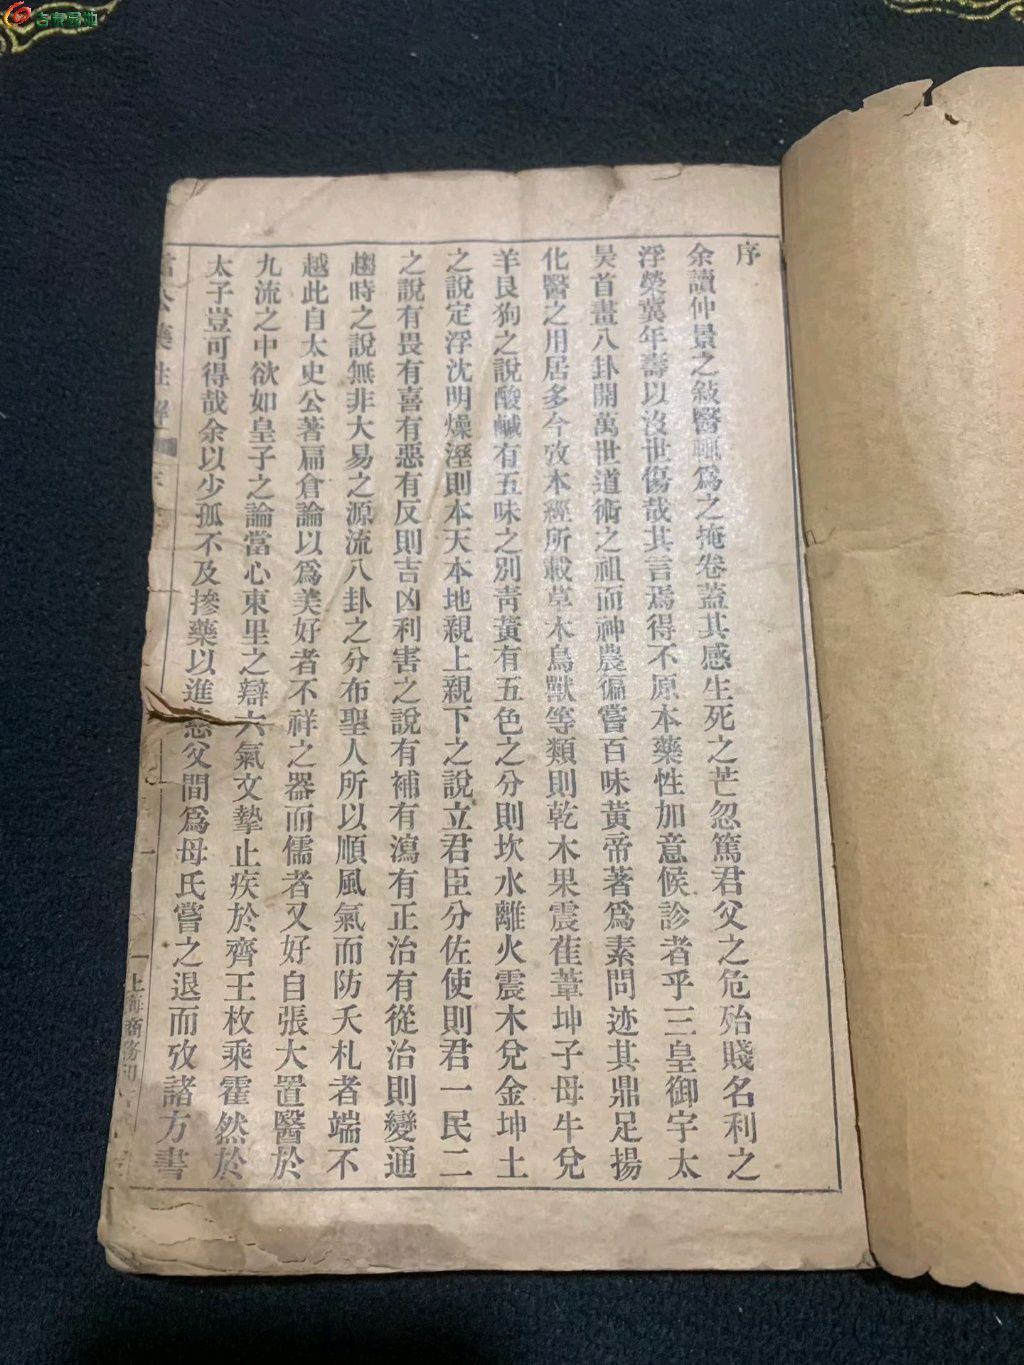 序
余讀仲景之敍醫輒爲之掩卷蓋其感生死之芒忽篤君父之危殆賤名利之
浮榮冀年壽以沒世傷哉其言焉得不原本藥性加意候診者乎三皇御宇太
昊首畫八卦開萬世道術之祖而神農徧嘗百味黃帝著爲素問迹其鼎足揚
化醫之用居多今攷本經所載草木鳥獸等類則乾木果震萑葦坤子母牛兌
羊艮狗之說酸鹹有五味之別靑黃有五色之分則坎水離火震木兌金坤土
之說定浮沈明燥溼則本天本地親上親下之說立君臣分佐使則君一民二
之說有畏有喜有惡有反則吉凶利害之說有補有瀉有正治有從治則變通
趨時之說無非大易之源流八卦之分布聖人所以順風氣而防夭札者端不
越此自太史公著扁倉論以爲美好者不祥之器而儒者又好自張大置醫於
九流之中欲如皇子之論當心東里之辯六氣文摯止疾於齊王枚乘霍然於
太子豈可得哉余以少孤不及摻藥以進慈父間爲母氏嘗之退而攷諸方書
公藥性解
一
上海商務印
古泉园地